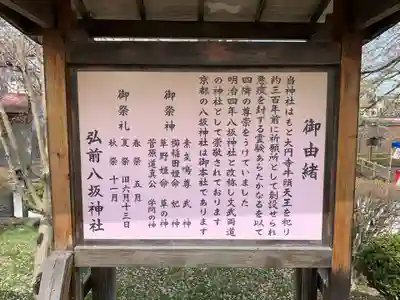 御由緒
当神社はもと大円寺牛頭天王を祀り
約三百年前に祈願所として創設せられ
悪疫を封する霊験あらたかなるを以て
四隣の尊崇をうけていました
明治四年八坂神社と改称し文武両道
の神社として崇敬されております
京都の八坂神社は御本社であります
御祭神
素戔嗚尊 武神
櫛稲田姫命 妃神
草野姫命 草の神
菅原道真公 学問の神
御祭礼
春祭 五月
夏祭 旧六月十三日
秋祭 十一月
弘前八坂神社